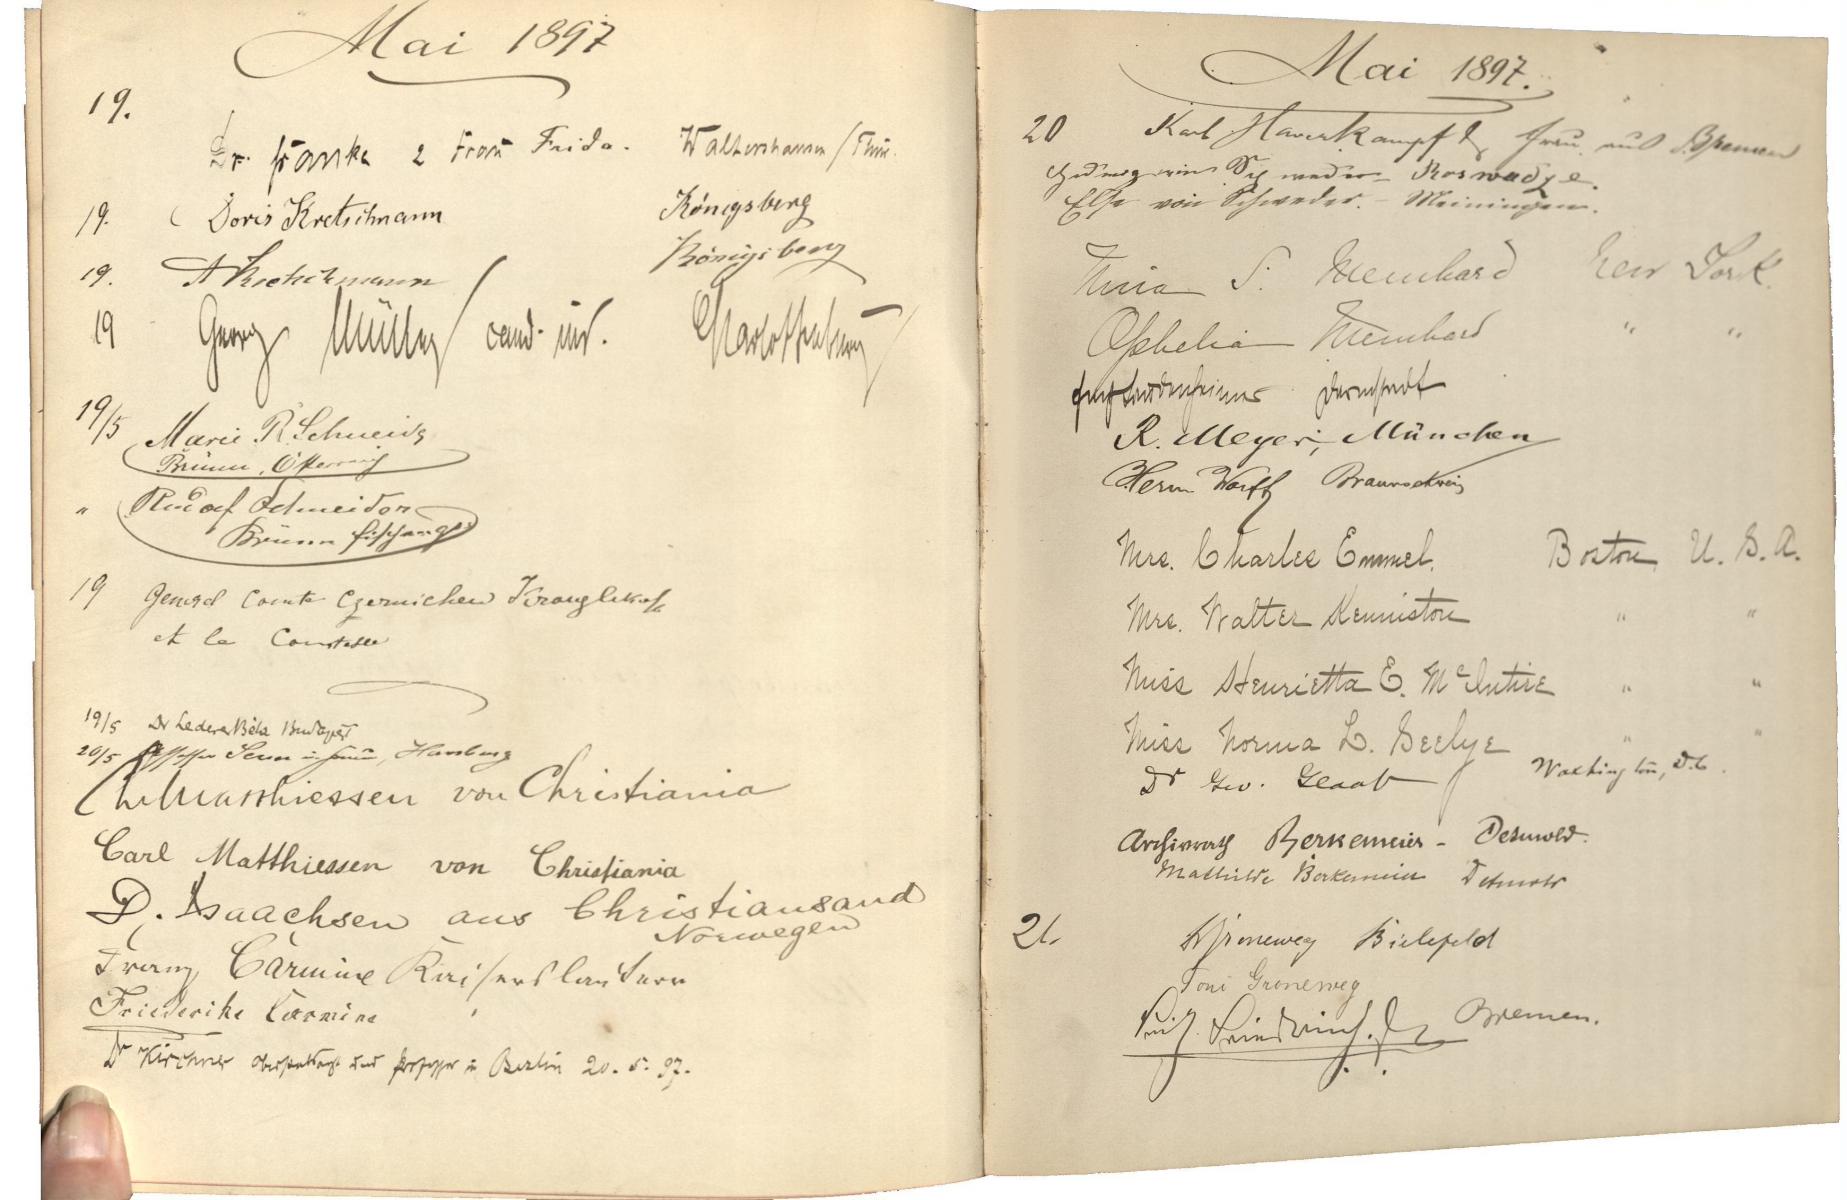 Mai 1897
19.
Dr. Franke & Frau Frida. Waltershausen / Thür.
19. Doris Kretschmann Königsberg
19. A Kretschmann Königsberg
19 Georg Müller cand. Charlottenburg
19/5 Marie R. Schneider
Brünn, Österreich
" Rudolf Schneider
Brünn
19 Comte Czernichew
et la Comtesse
19/5 Dr Lederer Béla Budapest
20/5 Hamburg
Matthiessen von Christiania
Carl Matthiessen von Christiania
D. Isaachsen aus Christiansand
Norwegen
Franz Carmine Kaiserslautern
Friederike Carmine "
Dr Kirchner und Professor in Berlin 20. 5. 97.
Mai 1897.
20 Karl Haverkampf & Frau aus Bremen
von Schweder - Roswadze.
Else von Schweder. - Meiningen.
Nina S. Meinhard New York.
Ophelia Meinhard " "
Darmstadt
R. Meyer, München
Herm Braunschweig
Mrs. Charles Emmel. Boston U. S. A.
Mrs. Walter Kenniston " "
Miss Henrietta E. McIntire " "
Miss Norma L. Seelye " "
Dr Geo. Glaab Washington, D.C.
Archivrath Berkemeier - Detmold.
Mathilde Berkemeier Detmold
21. Groneweg Bielefeld
Toni Groneweg
Bremen.